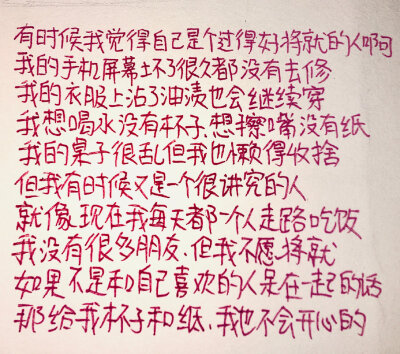 有时候我觉得自己是个过得好将就的人啊
我的手机屏幕坏了很久都没有去修
我的衣服上沾了油渍也会继续穿
我想喝水没有杯子、想擦嘴没有纸
我的桌子很乱但我也懒得收拾
但我有时候又是一个很讲究的人
就像现在我每天都一个人走路吃饭
我没有很多朋友、但我不愿将就
如果不是和自己喜欢的人呆在一起的话
那给我杯子和纸、我也不会开心的